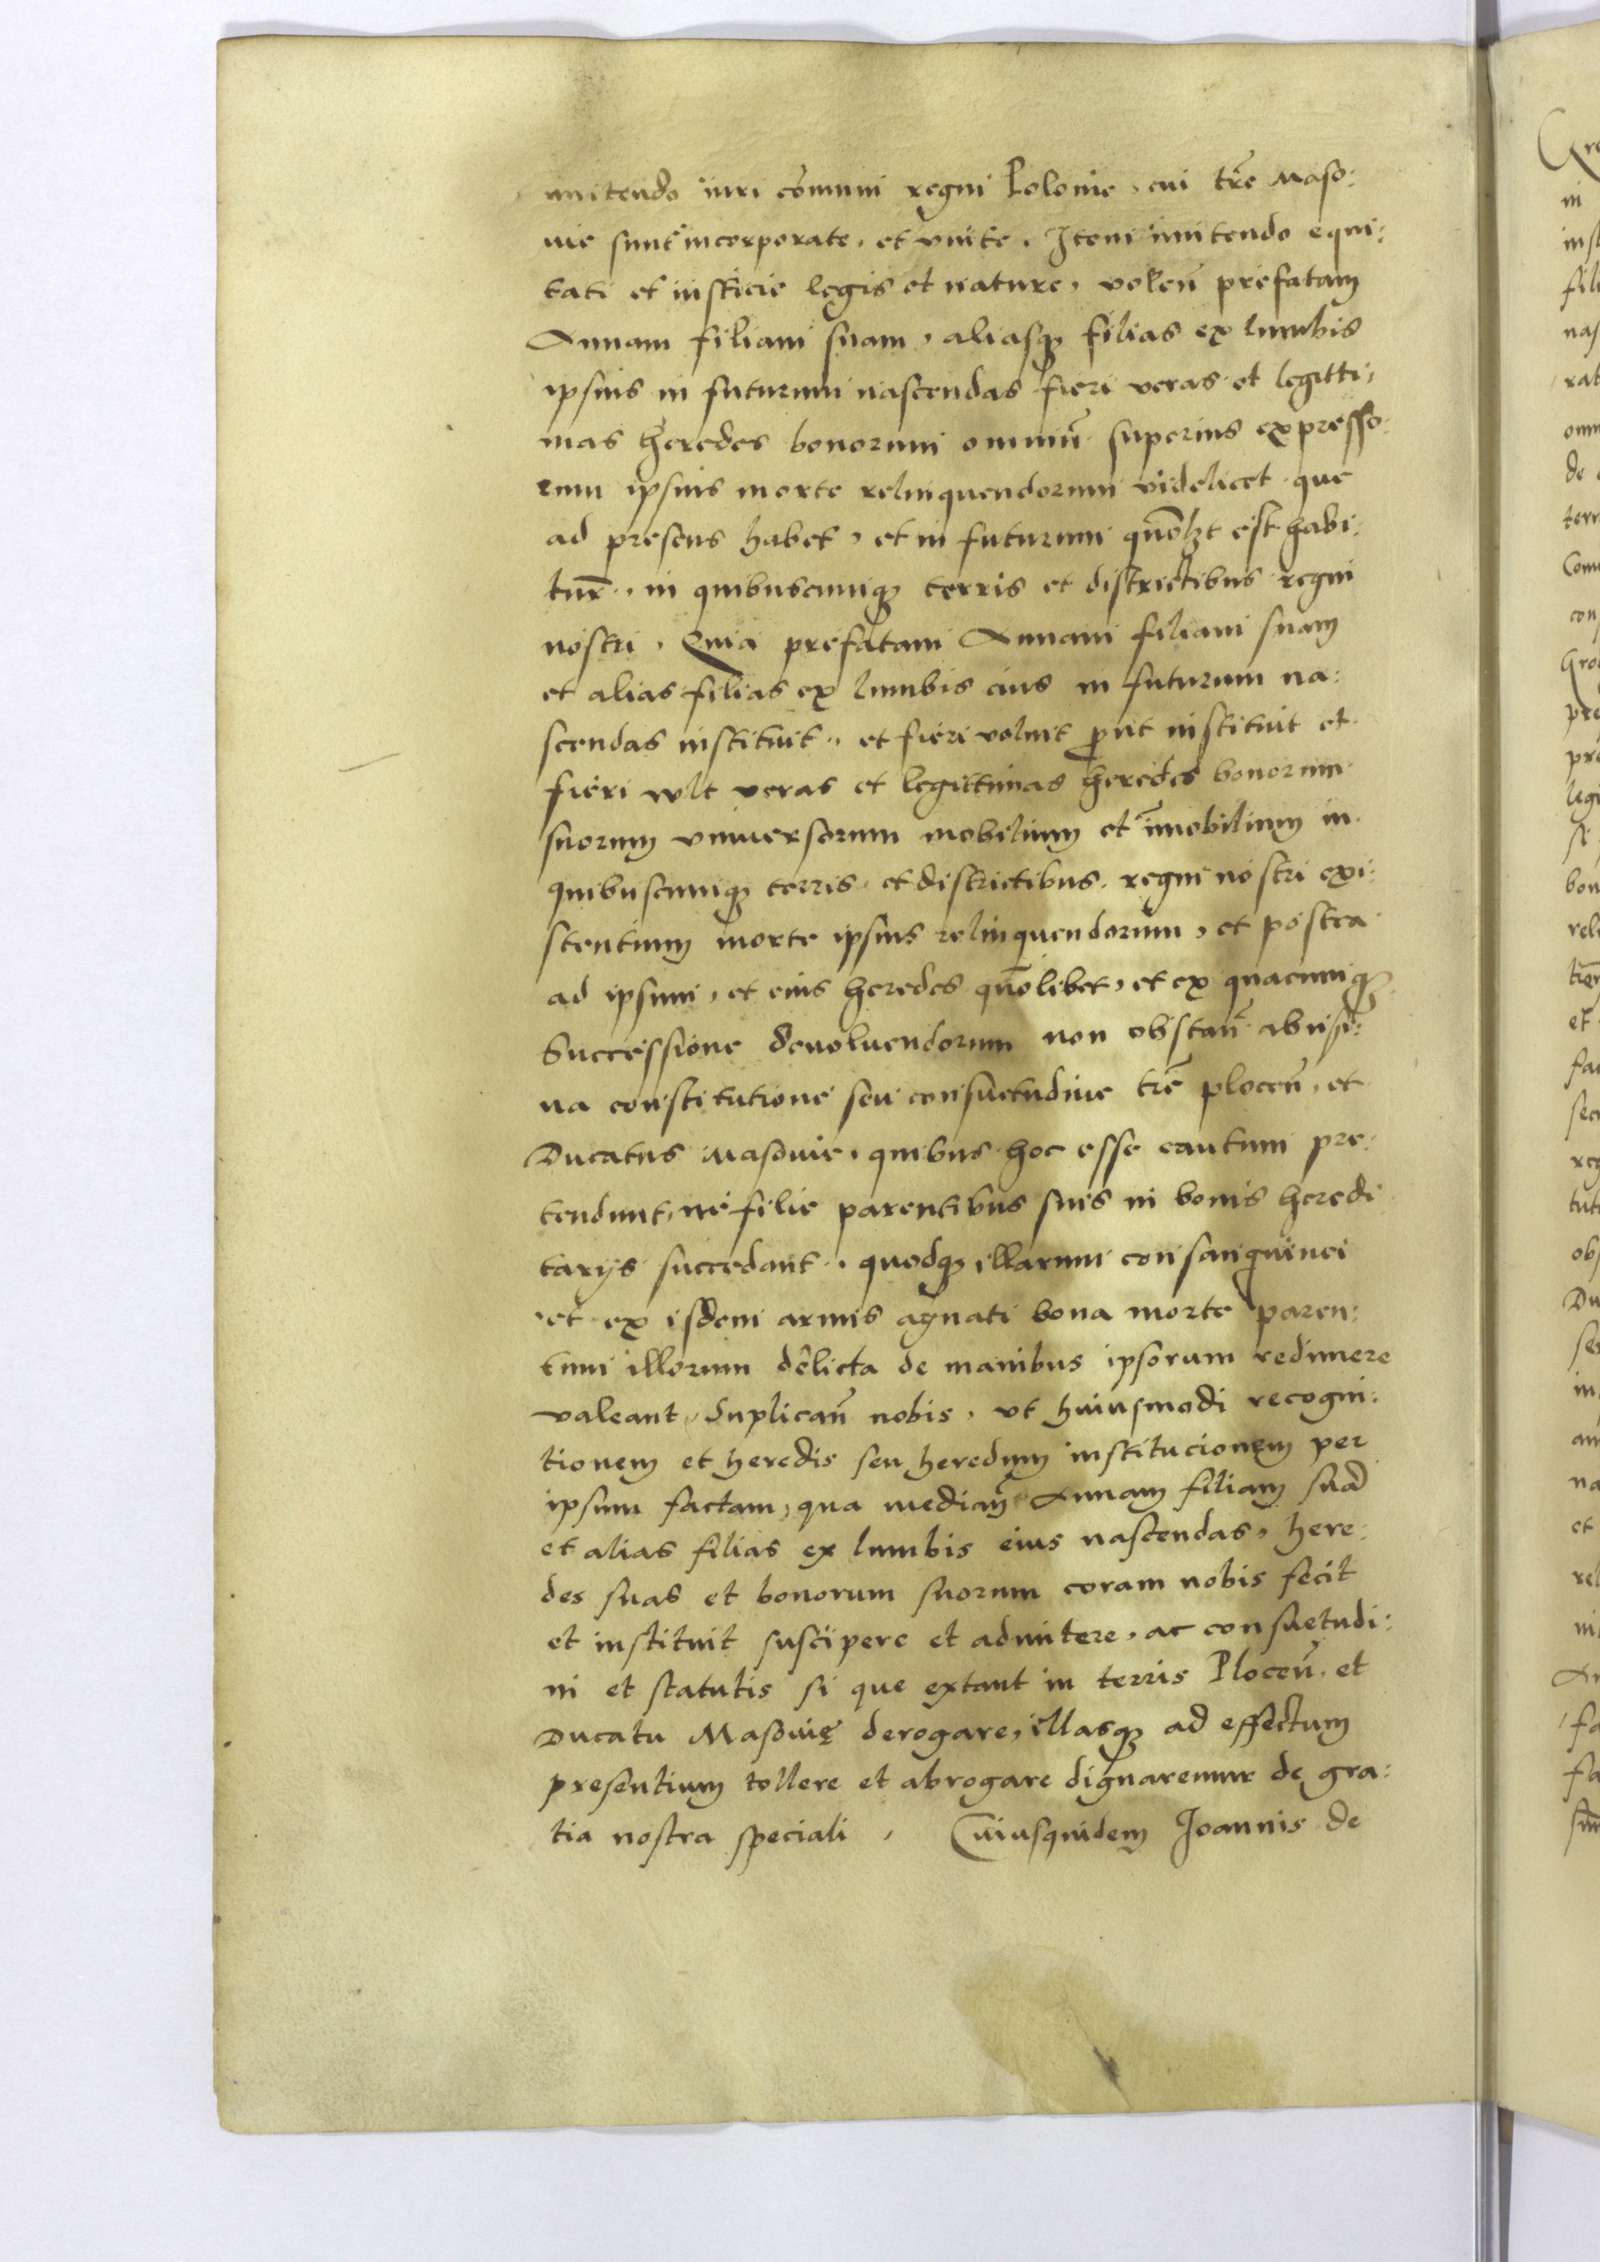 innitendo iuri cõmuni regni Polonie, cui tr̃e Maso:
uie sunt incorporate, et vnite. Item innitendo equi:
tati et iusticie legis et nature, volen̄ prefatam
Annam filiam suam, aliasq3 filias ex lumbis
ipsius in futurum nascendas fieri veras et legitti,
mas heredes bonorum omniũ superius expresso,
rum ipsius morte relinquendorum videlicet que
ad presens habet, et in futurum quõlzt est habi:
tur̃, in quibuscunq3 terris et districtibus regni
nostri. Quia prefatam Annam filiam suam
et alias filias ex lumbis eius in futurum na:
scendas instituit, et fieri voluit ꝓut instituit et
fieri wlt veras et legittimas heredes bonorum
suorum vniuersorum mobilium et ĩmobilium in
quibuscunq3 terris et districtibus regni nostri exi:
stentium morte ipsius relinquendorum, et postea
ad ipsum, et eius heredes quõlibet, et ex quacunq3
Successione deuoluendorum non obstan̄ abusi:
ua constitutione seu consuetudine tr̃e plocen̄, et
Ducatus Masouie, quibus hoc esse cautum pre:
tendunt, ne filie parentibus suis in bonis heredi
tarys succedant, quodq3 illarum consanguinei
et ex isdem armis agnati bona morte paren:
tum illorum delicta de manibus ipsorum redimere
valeant, Suplican̄ nobis, vt huiusmodi recogni:
tionem et heredis seu heredum institucionem per
ipsum factam, qua median̄ Annam filiam suã
et alias filias ex lumbis eius nascendas, here:
des suas et bonorum suorum coram nobis fecit
et instituit suscipere et admitere, ac consuetudi:
ni et statutis si que extant in terris Plocen̄, et
Ducatu Masouię derogare, illasq3 ad effectum
presentium tollere et abrogare dignaremur de gra:
tia nostra speciali, Cuiusquidem Joannis de